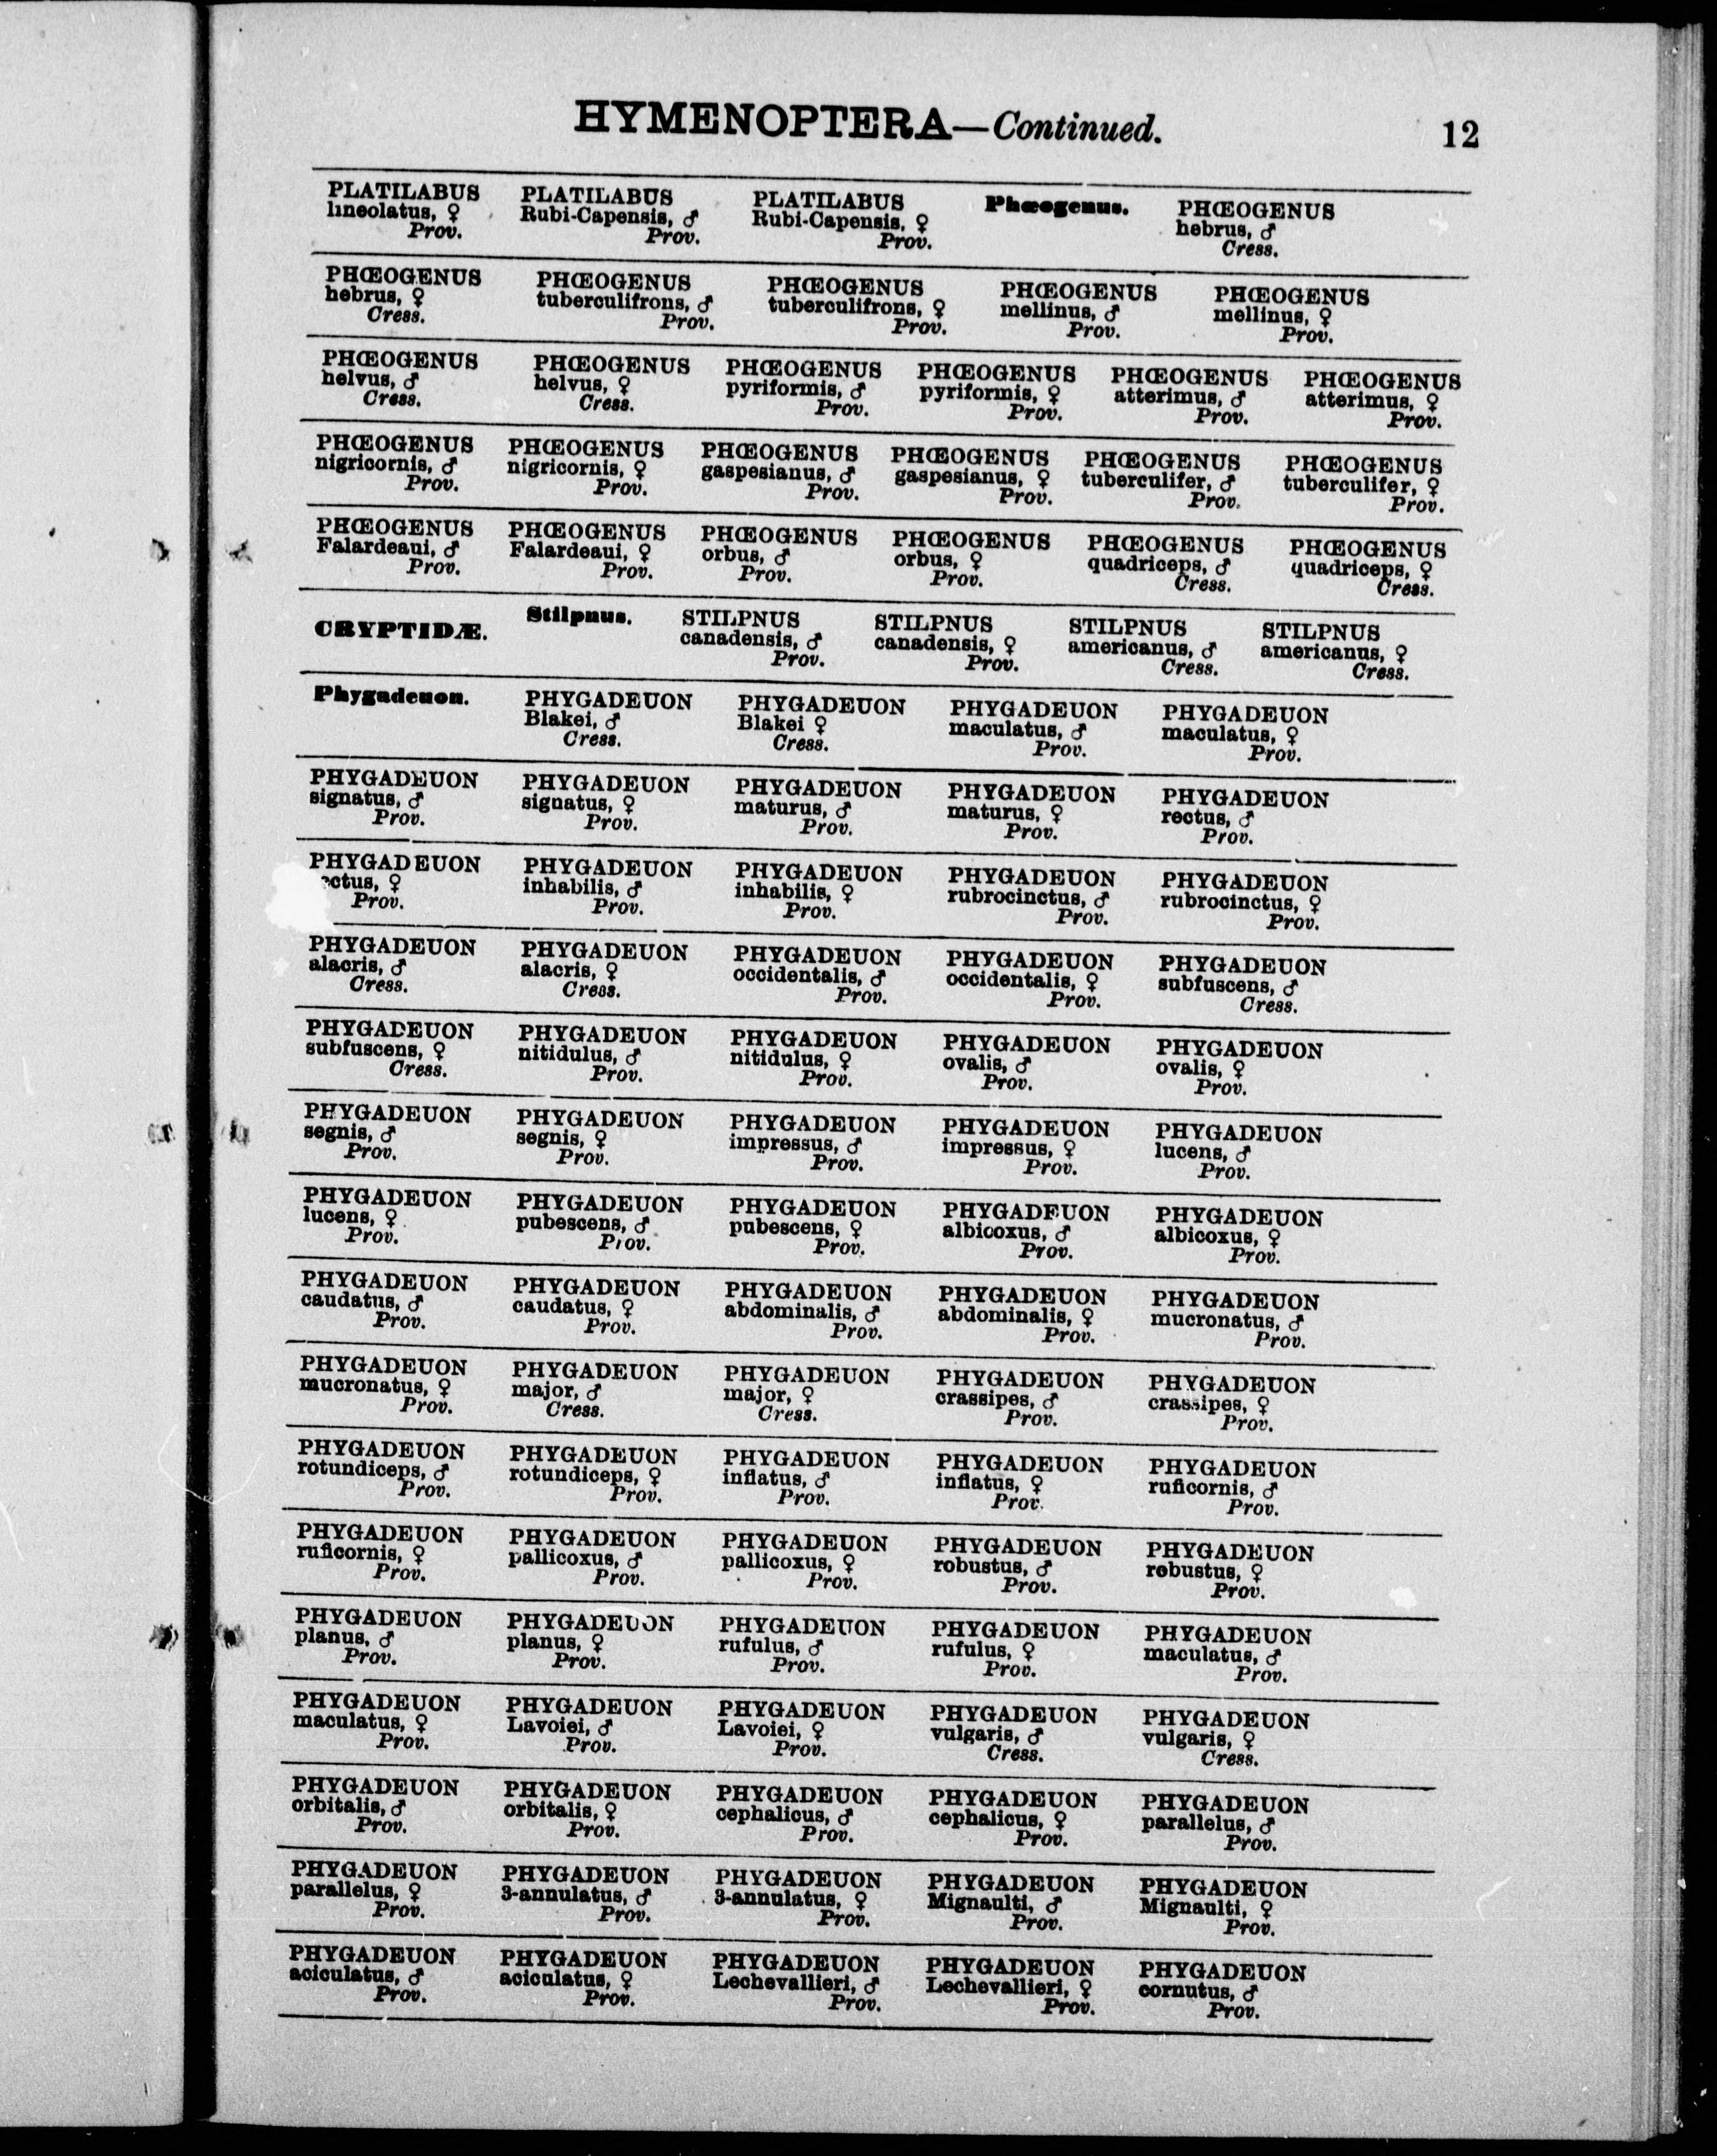 HYMENOPTERA—Continued.
12
PLATILABUS PLATILABUS PLATILABUS Phœogenus. PHŒOGENUS
lineolatus, ♀ Rubi-Capensis, ♂ Rubi-Capensis, ♀ hebrus, ♂
Prov. Prov. Prov. Cress.
PHŒOGENUS PHŒOGENUS PHŒOGENUS PHŒOGENUS PHŒOGENUS
hebrus, ♀ tuberculifrons, ♂ tuberculifrons, ♀ mellinus, ♂ mellinus, ♀
Cress. Prov. Prov. Prov. Prov.
PHŒOGENUS PHŒOGENUS PHŒOGENUS PHŒOGENUS PHŒOGENUS PHŒOGENUS
helvus, ♂ helvus, ♀ pyriformis, ♂ pyriformis, ♀ atterimus, ♂ atterimus, ♀
Cress. Cress. Prov. Prov. Prov. Prov.
PHŒOGENUS PHŒOGENUS PHŒOGENUS PHŒOGENUS PHŒOGENUS PHŒOGENUS
nigricornis, ♂ nigricornis, ♀ gaspesianus, ♂ gaspesianus, ♀ tuberculifer, ♂ tuberculifer, ♀
Prov. Prov. Prov. Prov. Prov. Prov.
PHŒOGENUS PHŒOGENUS PHŒOGENUS PHŒOGENUS PHŒOGENUS PHŒOGENUS
Falardeaui, ♂ Falardeaui, ♀ orbus, ♂ orbus, ♀ quadriceps, ♂ quadriceps, ♀
Prov. Prov. Prov. Prov. Cress. Cress.
CRYPTIDÆ. Stilpnus. STILPNUS STILPNUS STILPNUS STILPNUS
canadensis, ♂ canadensis, ♀ americanus, ♂ americanus, ♀
Prov. Prov. Cress. Cress.
Phygadeuon. PHYGADEUON PHYGADEUON PHYGADEUON PHYGADEUON
Blakei, ♂ Blakei ♀ maculatus, ♂ maculatus, ♀
Cress. Cress. Prov. Prov.
PHYGADEUON PHYGADEUON PHYGADEUON PHYGADEUON PHYGADEUON
signatus, ♂ signatus, ♀ maturus, ♂ maturus, ♀ rectus, ♂
Prov. Prov. Prov. Prov. Prov.
PHYGADEUON PHYGADEUON PHYGADEUON PHYGADEUON PHYGADEUON
ectus, ♀ inhabilis, ♂ inhabilis, ♀ rubrocinctus, ♂ rubrocinctus, ♀
Prov. Prov. Prov. Prov. Prov.
PHYGADEUON PHYGADEUON PHYGADEUON PHYGADEUON PHYGADEUON
alacris, ♂ alacris, ♀ occidentalis, ♂ occidentalis, ♀ subfuscens, ♂
Cress. Cress. Prov. Prov. Cress.
PHYGADEUON PHYGADEUON PHYGADEUON PHYGADEUON PHYGADEUON
subfuscens, ♀ nitidulus, ♂ nitidulus, ♀ ovalis, ♂ ovalis, ♀
Cress. Prov. Prov. Prov. Prov.
PHYGADEUON PHYGADEUON PHYGADEUON PHYGADEUON PHYGADEUON
segnis, ♂ segnis, ♀ impressus, ♂ impressus, ♀ lucens, ♂
Prov. Prov. Prov. Prov. Prov.
PHYGADEUON PHYGADEUON PHYGADEUON PHYGADEUON PHYGADEUON
lucens, ♀ pubescens, ♂ pubescens, ♀ albicoxus, ♂ albicoxus, ♀
Prov. Prov. Prov. Prov. Prov.
PHYGADEUON PHYGADEUON PHYGADEUON PHYGADEUON PHYGADEUON
caudatus, ♂ caudatus, ♀ abdominalis, ♂ abdominalis, ♀ mucronatus, ♂
Prov. Prov. Prov. Prov. Prov.
PHYGADEUON PHYGADEUON PHYGADEUON PHYGADEUON PHYGADEUON
mucronatus, ♀ major, ♂ major, ♀ crassipes, ♂ crassipes, ♀
Prov. Cress. Cress. Prov. Prov.
PHYGADEUON PHYGADEUON PHYGADEUON PHYGADEUON PHYGADEUON
rotundiceps, ♂ rotundiceps, ♀ inflatus, ♂ inflatus, ♀ ruficornis, ♂
Prov. Prov. Prov. Prov. Prov.
PHYGADEUON PHYGADEUON PHYGADEUON PHYGADEUON PHYGADEUON
ruficornis, ♀ pallicoxus, ♂ pallicoxus, ♀ robustus, ♂ robustus, ♀
Prov. Prov. Prov. Prov. Prov.
PHYGADEUON PHYGADEUON PHYGADEUON PHYGADEUON PHYGADEUON
planus, ♂ planus, ♀ rufulus, ♂ rufulus, ♀ maculatus, ♂
Prov. Prov. Prov. Prov. Prov.
PHYGADEUON PHYGADEUON PHYGADEUON PHYGADEUON PHYGADEUON
maculatus, ♀ Lavoiei, ♂ Lavoiei, ♀ vulgaris, ♂ vulgaris, ♀
Prov. Prov. Prov. Cress. Cress.
PHYGADEUON PHYGADEUON PHYGADEUON PHYGADEUON PHYGADEUON
orbitalis, ♂ orbitalis, ♀ cephalicus, ♂ cephalicus, ♀ parallelus, ♂
Prov. Prov. Prov. Prov. Prov.
PHYGADEUON PHYGADEUON PHYGADEUON PHYGADEUON PHYGADEUON
parallelus, ♀ 3-annulatus, ♂ 3-annulatus, ♀ Mignaulti, ♂ Mignaulti, ♀
Prov. Prov. Prov. Prov. Prov.
PHYGADEUON PHYGADEUON PHYGADEUON PHYGADEUON PHYGADEUON
aciculatus, ♂ aciculatus, ♀ Lechevallieri, ♂ Lechevallieri, ♀ cornutus, ♂
Prov. Prov. Prov. Prov. Prov.